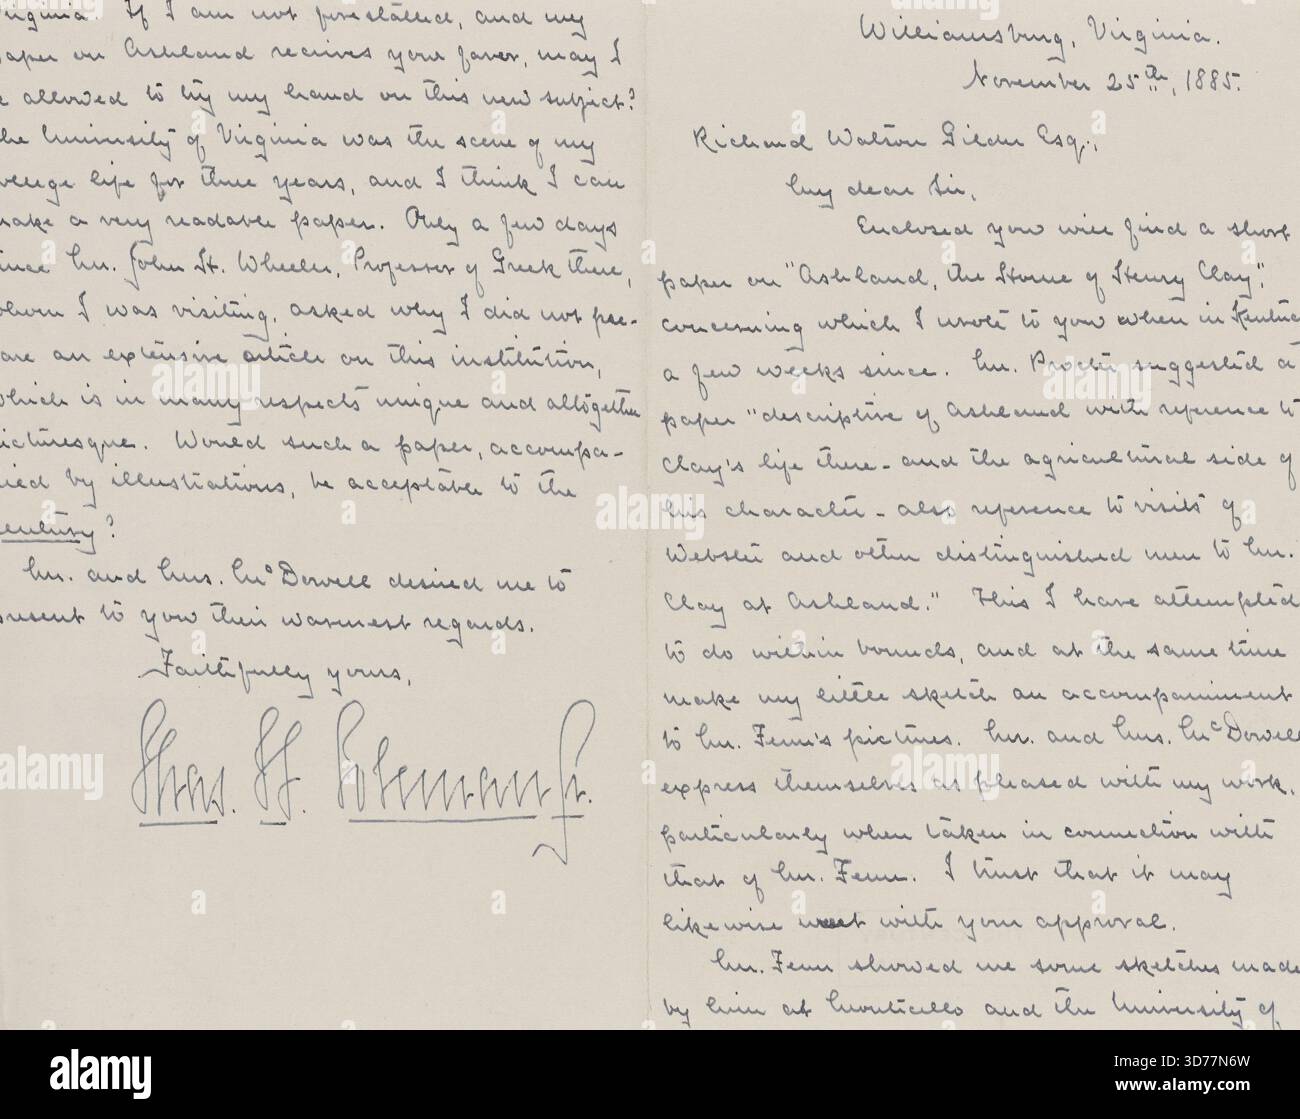 Williamsburg, Virginia.
November 25th, 1885.
Richard Watson Gilder Esq.,
My dear Sir,
Enclosed you will find a short
paper on "Ashland, the Home of Henry Clay",
concerning which I wrote to you when in Kentuc
a few weeks since. Mr. Procter suggested a
paper "descriptive of Ashland with reference to
Clay's life there - and the agricultural side of
his character - also reference to visits of
Webster and other distinguished men to Mr.
Clay at Ashland." This I have attempted
to do within bounds, and at the same time
make my little sketch an accompaniment
to Mr. Fenn's pictures. Mr. and Mrs. McDowell
express themselves as pleased with my work,
particularly when taken in connection with
that of Mr. Fenn. I trust that it may
likewise meet with your approval.
Mr. Fenn showed me some sketches made
by him at Monticello and the University of
Virginia. If I am not forestalled, and my
paper on Ashland receives your favor, may I
be allowed to try my hand on this new subject?
The University of Virginia was the scene of my
college life for three years, and I think I can
make a very readable paper. Only a few days
since Mr. John H. Wheeler, Professor of Greek there,
whom I was visiting, asked why I did not pre-
pare an extensive article on this institution,
which is in many respects unique and altogether
picturesque. Would such a paper, accompa-
nied by illustrations, be acceptable to the
Century?
Mr. and Mrs. McDowell desired me to
present to you their warmest regards.
Faithfully yours,
Chas. W. Coleman Jr.
alamy
Image ID: 3D77N6W
www.alamy.com